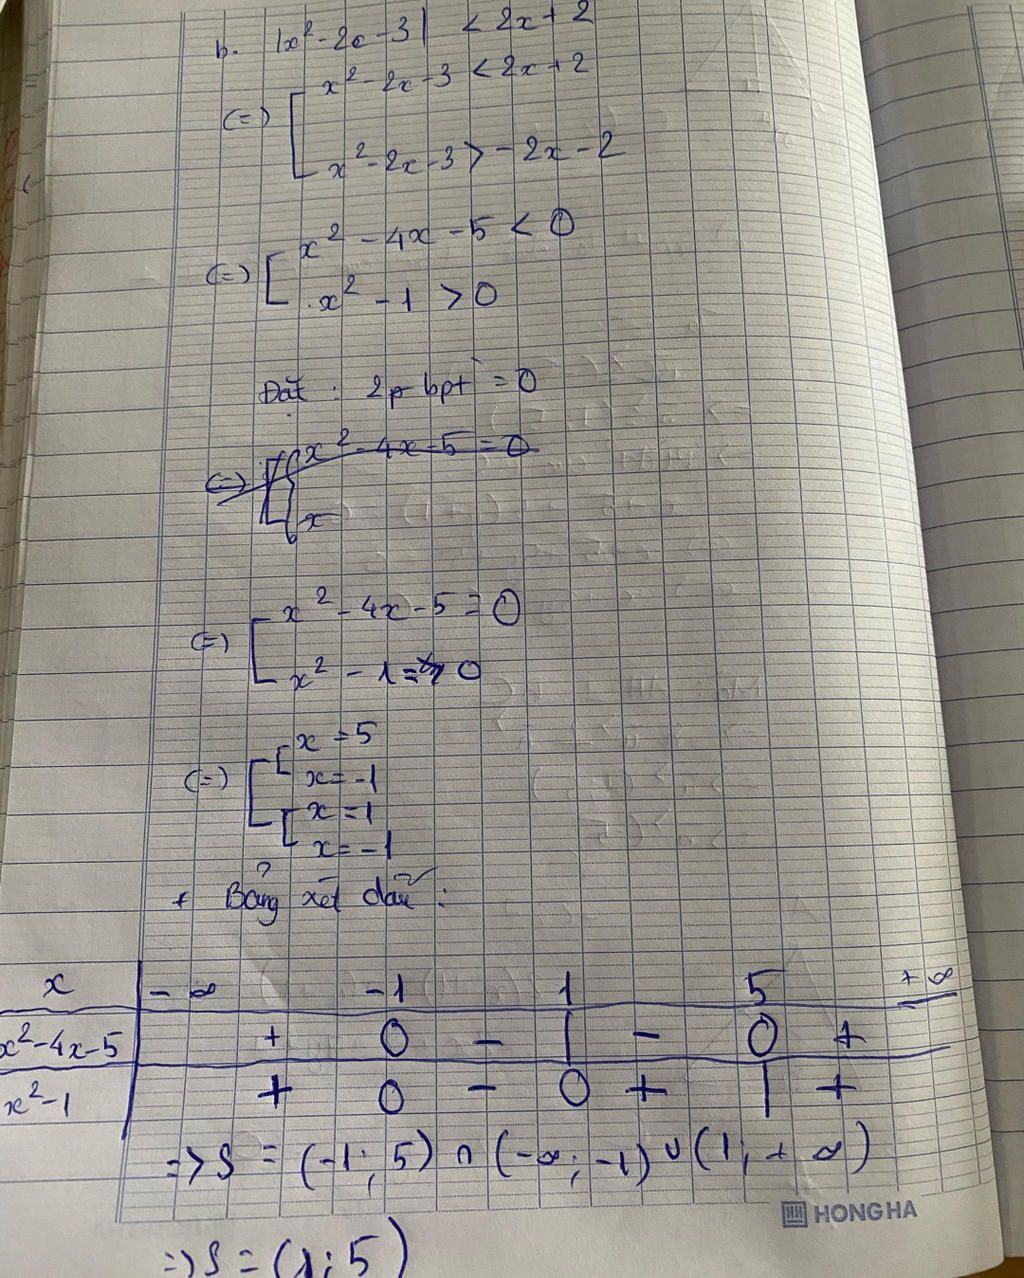 b. |x² - 2x - 3| < 2x + 2
(=) [ x² - 2x - 3 < 2x + 2
x² - 2x - 3 > - 2x - 2
(=) [ x² - 4x - 5 < 0
x² - 1 > 0
Đặt : 2p bpt = 0
(=) [ { x² - 4x - 5 = 0
x
(=) [ x² - 4x - 5 = 0
x² - 1 = 0
(=) [ [ x = 5
x = -1
[ x = 1
x = -1
+ Bảng xét dấu :
x - ∞ -1 1 5 + ∞
x² - 4x - 5 + 0 - | - 0 +
x² - 1 + 0 - 0 + | +
=> S = (-1; 5) ∩ (-∞; -1) ∪ (1; + ∞)
HONG HA
=> S = (1; 5)